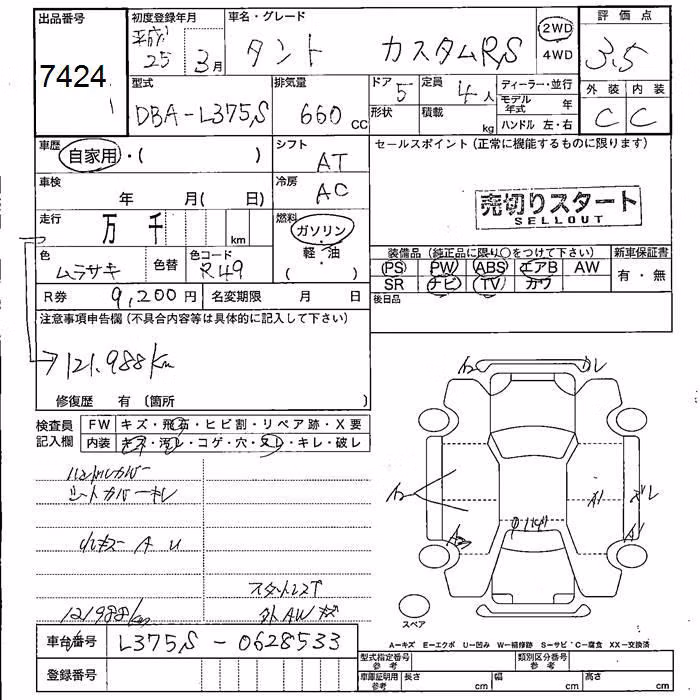 出品番号 初度登録年月 車名・グレード 2WD 評価点
平成 25 3月 タント カスタムRS 4WD 3.5
7424 型式 排気量 ドア 5 定員 4人 ディーラー・並行 外装 内装
1 DBA-L375S 660 cc 形状 積載 kg モデル年式 年 C C
ハンドル 左・右
車歴 自家用・( ) シフト AT セールスポイント (正常に機能するものに限ります)
車検 年 月( 日) 冷房 AC
売切りスタート
SELLOUT
走行 万 千 km 燃料 ガソリン
軽・油
( )
色 ムラサキ 色替 色コード R49
装備品 (純正品に限り〇をつけて下さい) 新車保証書
PS PW ABS エアB AW 有・無
SR ナビ TV カワ
R券 9,200円 名変期限 月 日 後日品
注意事項申告欄 (不具合内容等は具体的に記入して下さい)
→121.988km
修復歴 有 〔箇所 〕
検査員 記入欄 FW キズ・飛石・ヒビ割・リペア跡・X要
内装 キズ・汚レ・コゲ・穴・スレ・キレ・破レ
ハンドルカバー
シートカバーキレ
小キズ A U
スタットレス
121988km 外AW キズ
スペア
A=キズ E=エクボ U=凹み W=補修跡 S=サビ C=腐食 XX=交換済
車台番号 L375S-0628533
型式指定番号 参考 類別区分番号 参考
登録番号 車庫証明用 参考 長さ cm 幅 cm 高さ cm